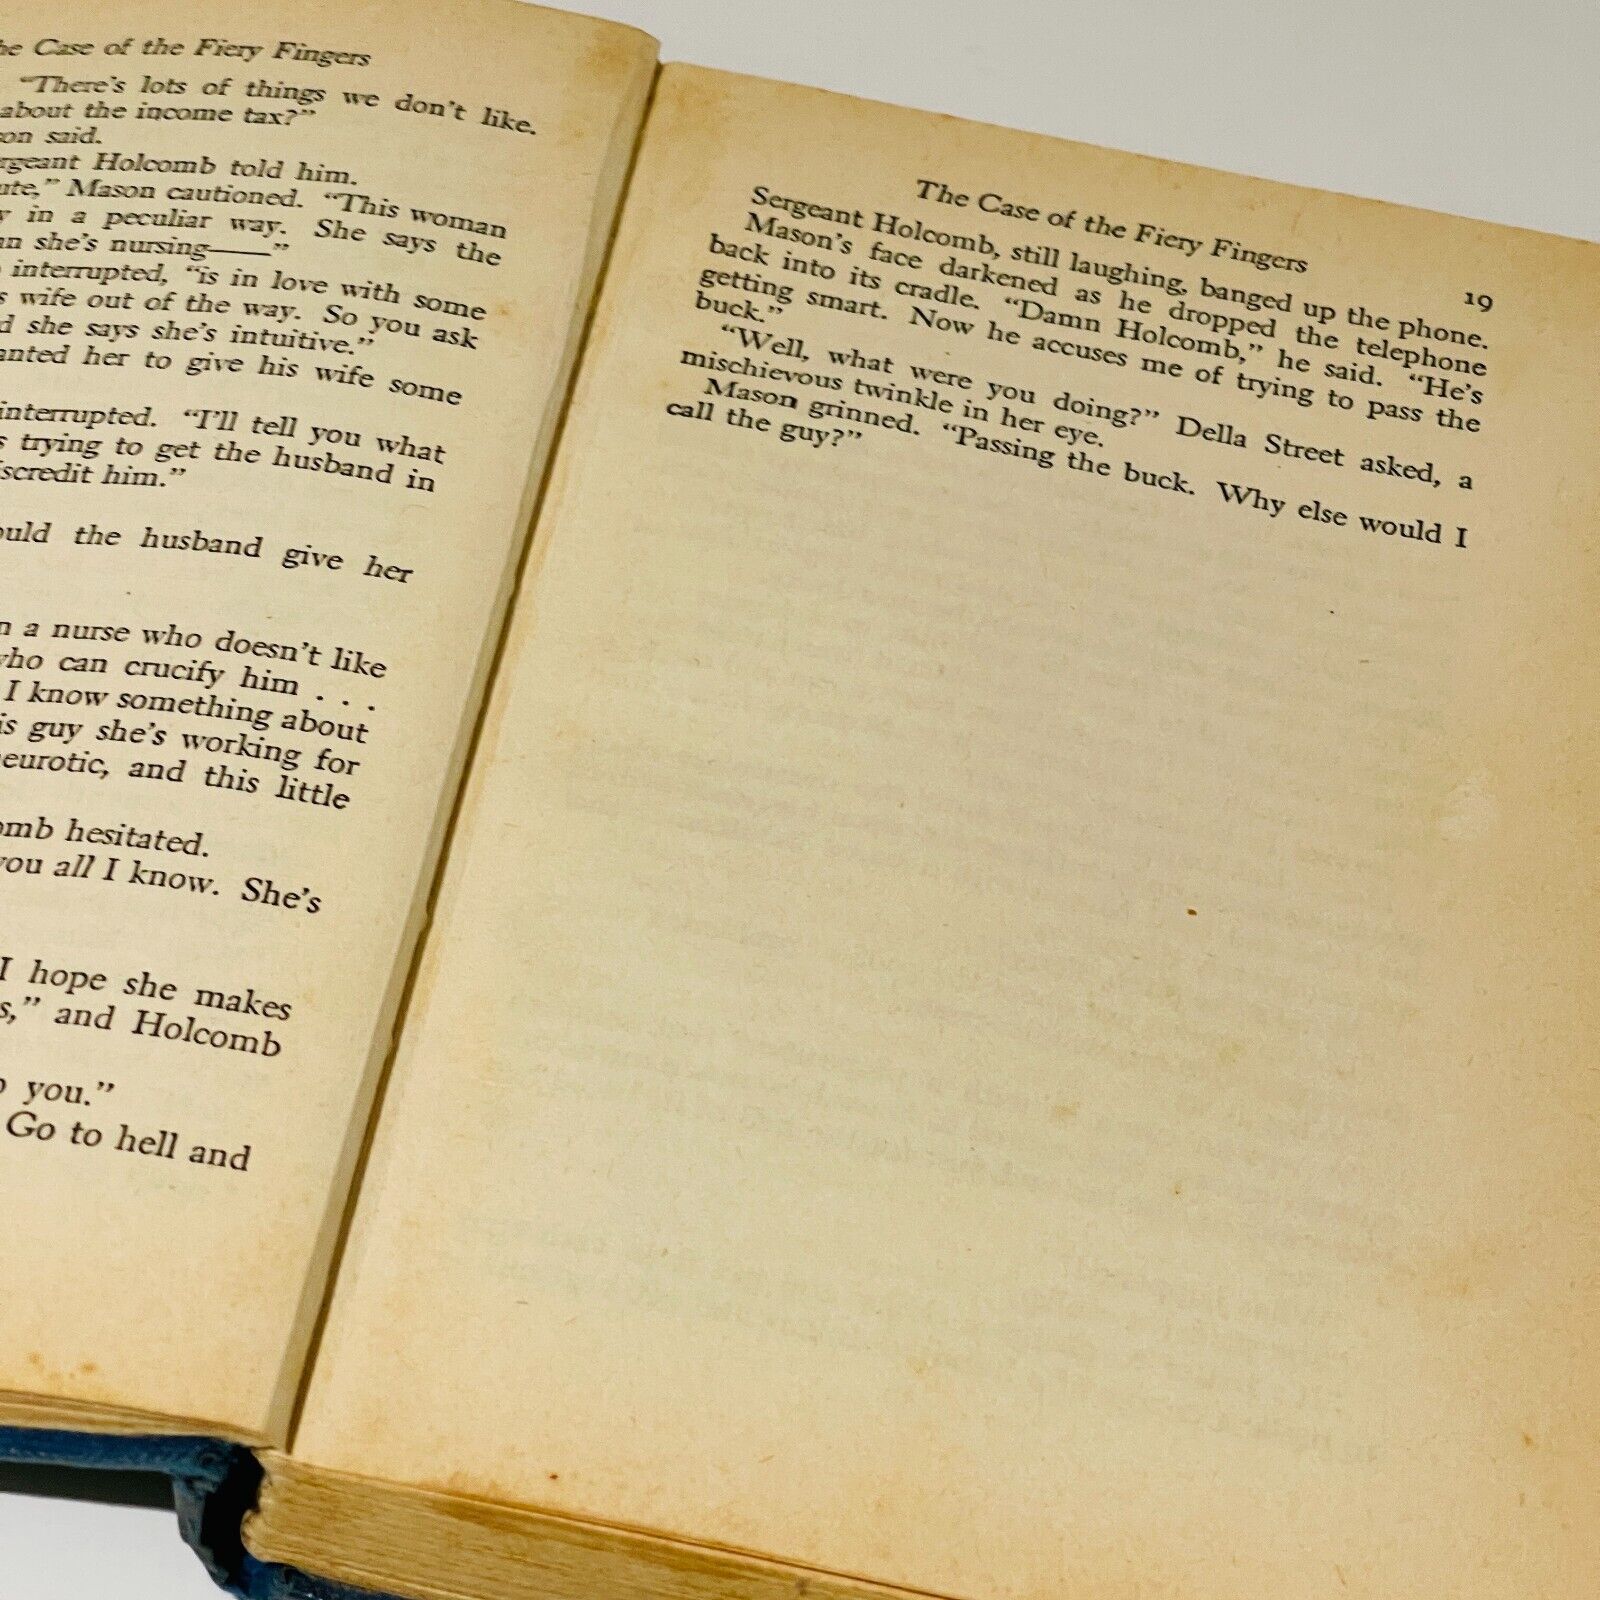 The Case of the Fiery Fingers
"There's lots of things we don't like.
about the income tax?"
said.
Holcomb told him.
Mason cautioned. "This woman
in a peculiar way. She says the
she's nursing——"
interrupted, "is in love with some
wife out of the way. So you ask
she says she's intuitive."
her to give his wife some
interrupted. "I'll tell you what
trying to get the husband in
him."
the husband give her
a nurse who doesn't like
who can crucify him . . .
I know something about
guy she's working for
neurotic, and this little
hesitated.
you all I know. She's
I hope she makes
and Holcomb
you."
Go to hell and
The Case of the Fiery Fingers
19
Sergeant Holcomb, still laughing, banged up the phone.
Mason's face darkened as he dropped the telephone
back into its cradle. "Damn Holcomb," he said. "He's
getting smart. Now he accuses me of trying to pass the
buck."
"Well, what were you doing?" Della Street asked, a
mischievous twinkle in her eye.
Mason grinned. "Passing the buck. Why else would I
call the guy?"